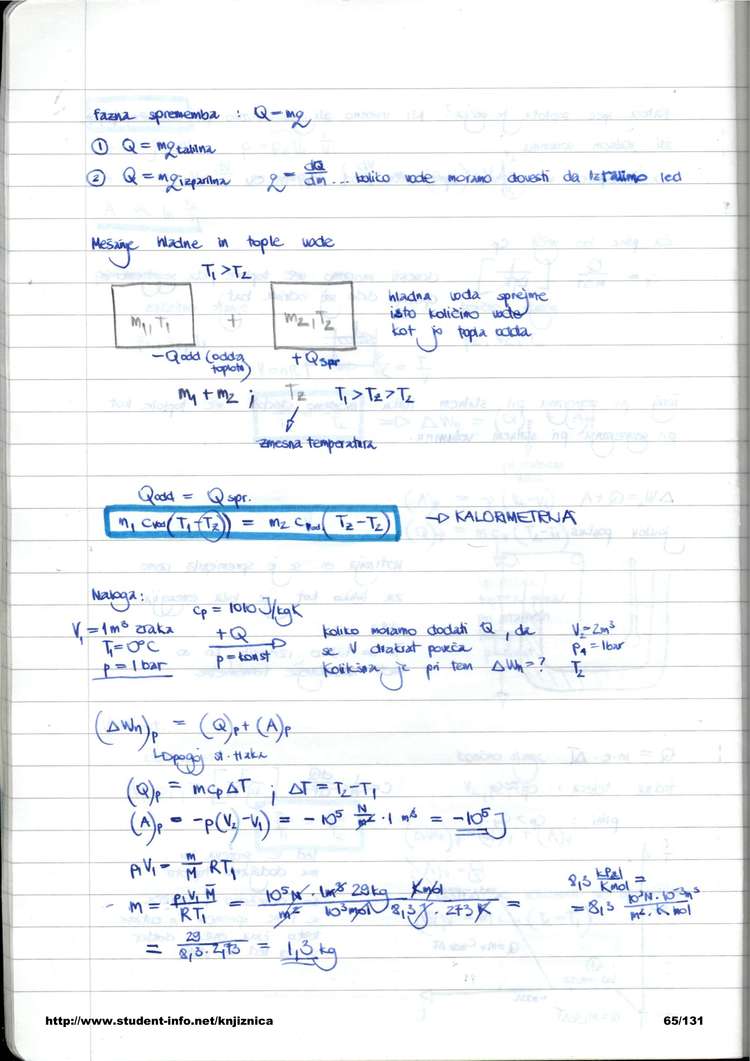 fazna sprememba : Q = mq
① Q = mq talilna
② Q = mq izparilna   q = dQ/dm ... koliko vode moramo dovesti da led
Mešanje hladne in tople vode
T₁ > T₂
m₁, T₁ + m₂, T₂
hladna voda sprejme
isto količino vode
kot jo topla odda
- Qodd (odda toploto)   + Qspr
m₁ + m₂ ; Tz   T₁ > Tz > T₂
zmesna temperatura
Qodd = Qspr.
m₁ cvod (T₁ - Tz) = m₂ cvod (Tz - T₂) → KALORIMETRIJA
Naloga:
cp = 1010 J/kgK
V₁ = 1m³ zraka   + Q   koliko moramo dodati Q, da   V₂ = 2m³
T₁ = 0°C   p = konst   se V dvakrat poveča   p₁ = 1bar
p = 1 bar   Kolikšna je pri tem ΔWn = ?   T₂
(ΔWn)p = (Q)p + (A)p
↳ pogoj st. tlaka
(Q)p = m cp ΔT ; ΔT = T₂ - T₁
(A)p = - p(V₂ - V₁) = - 10⁵ N/m² · 1 m³ = - 10⁵ J
p₁V₁ = m/M RT₁
m = p₁V₁M/RT₁ = 10⁵ N · 1m³ 29 kg Kmol / m² 10³ mol 8,3 J · 273 K =
8,3 kPa l/K mol =
= 8,3 10³ N · 10⁻³ m³ / m² · K mol
= 29 / 8,3 · 2,73 = 1,3 kg
http://www.student-info.net/knjiznica   65/131